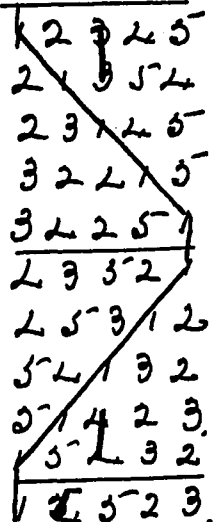 1 2 3 4 5
2 1 3 5 4
2 3 1 4 5
3 2 4 1 5
3 4 2 5 1
4 3 5 2 1
4 5 3 1 2
5 4 1 3 2
5 1 4 2 3.
1 5 4 3 2
1 4 5 2 3